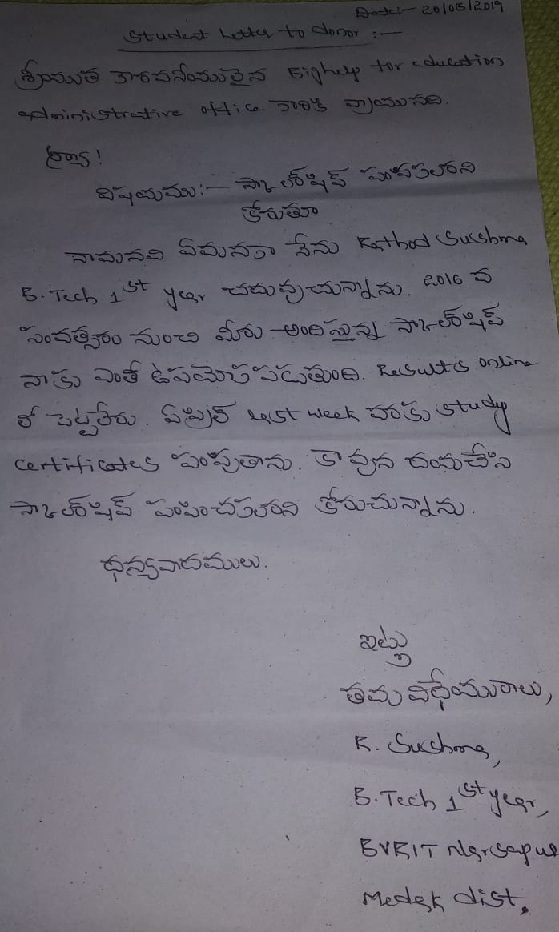 Date:- 20/05/2019
Student Letter to donor :-
శ్రీయుత గౌరవనీయులైన for education
administrative office గారికి వ్రాయునది.
ఆర్యా!
విషయము:- స్కాలర్‌షిప్ పంపవలసి
కోరుతూ
నామనవి ఏమనగా నేను Kethod Sushma
B.Tech 1st year చదువుచున్నాను. 2016 వ
సంవత్సరం నుంచి మీరు అందిస్తున్న స్కాలర్‌షిప్
నాకు ఎంతో ఉపయోగపడుతుంది. Results online
లో పెట్టలేదు. ఏప్రిల్ last week వరకు study
certificates పంపుతాను. కావున దయచేసి
స్కాలర్‌షిప్ పంపించవలసి కోరుచున్నాను.
ధన్యవాదములు.
ఇట్లు
తమ విధేయురాలు,
K. Sushma,
B.Tech 1st year,
BVRIT Narsapur
Medak dist.